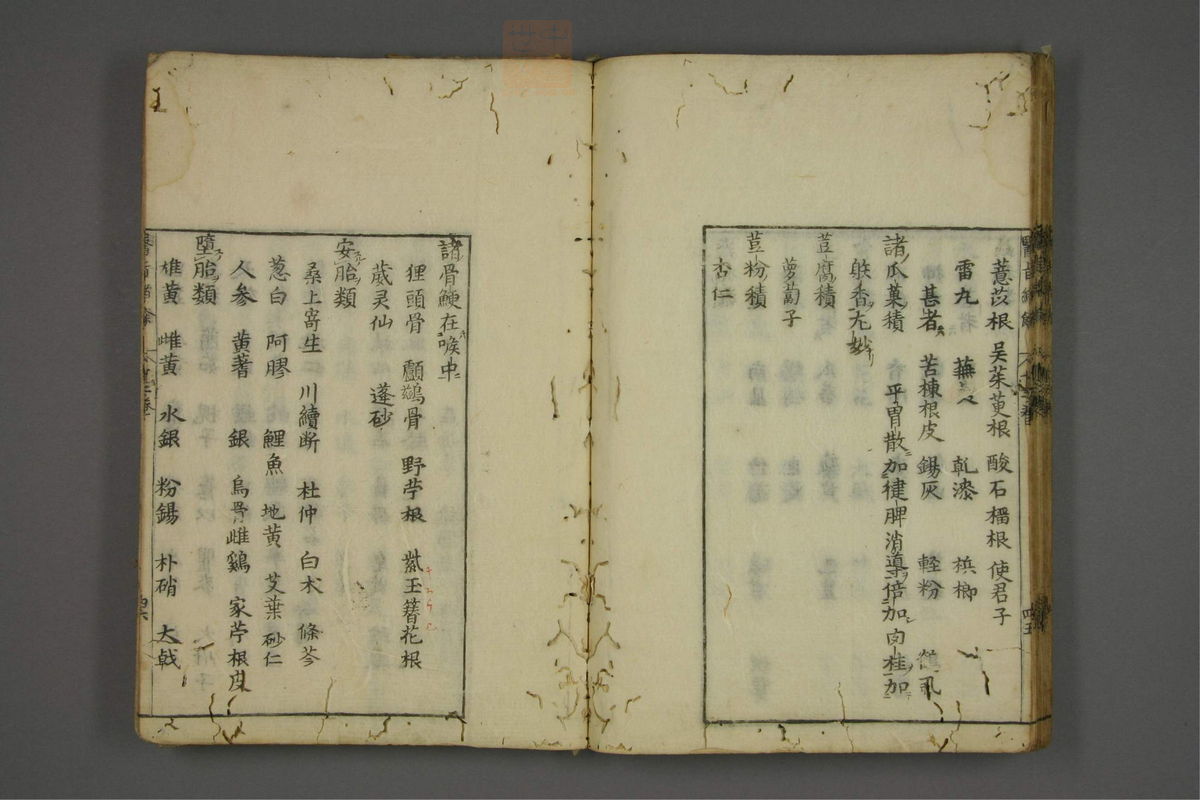 薏苡根 吳茱萸根 酸石榴根 使君子
雷丸 蕪 乾漆 檳榔
甚者 苦楝根皮 錫灰 軽粉
諸瓜菓積 平胃散加健脾消導倍加肉桂加
麝香尢妙
荳腐積
蘿蔔子
荳粉積
杏仁
四五
諸骨鯁在喉中
狸頭骨 鸕鷀骨 野苧根 紫玉簪花根
葳灵仙 蓬砂
安胎類
桑上寄生 川續断 杜仲 白术 條芩
葱白 阿膠 鯉魚 地黄 艾葉 砂仁
人参 黄蓍 銀 烏骨雌鷄 家苧根皮
墮胎類
雄黄 雌黄 水銀 粉錫 朴硝 大戟